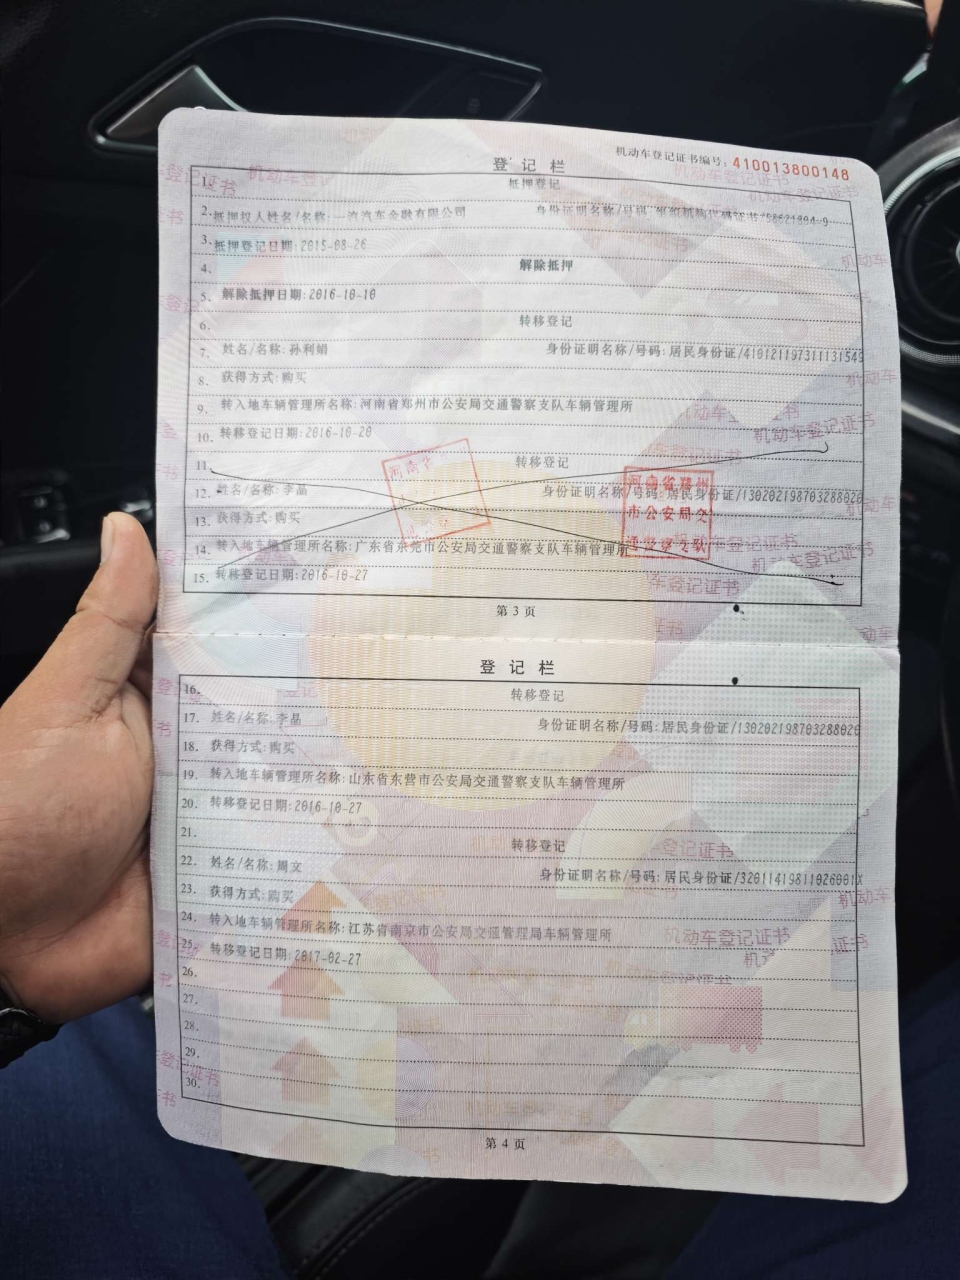 机动车登记证书编号：410013800148
登 记 栏
1. 抵押登记
2. 抵押权人姓名/名称:一汽汽车金融有限公司 身份证明名称/号码:组织机构代码证书/
3. 抵押登记日期:2015-08-26
4. 解除抵押
5. 解除抵押日期:2016-10-10
6. 转移登记
7. 姓名/名称:孙利娟 身份证明名称/号码:居民身份证/410121197311131543
8. 获得方式:购买
9. 转入地车辆管理所名称:河南省郑州市公安局交通警察支队车辆管理所
10. 转移登记日期:2016-10-20
11. 转移登记
12. 姓名/名称:李晶 身份证明名称/号码:居民身份证/130202198703288020
13. 获得方式:购买
14. 转入地车辆管理所名称:广东省东莞市公安局交通警察支队车辆管理所
15. 转移登记日期:2016-10-27
河南省郑州
市公安局交
通警察支队
第 3 页
登 记 栏
16. 转移登记
17. 姓名/名称:李晶 身份证明名称/号码:居民身份证/130202198703288020
18. 获得方式:购买
19. 转入地车辆管理所名称:山东省东营市公安局交通警察支队车辆管理所
20. 转移登记日期:2016-10-27
21. 转移登记
22. 姓名/名称:周文 身份证明名称/号码:居民身份证/32011419811026001X
23. 获得方式:购买
24. 转入地车辆管理所名称:江苏省南京市公安局交通管理局车辆管理所
25. 转移登记日期:2017-02-27
26.
27.
28.
29.
30.
第 4 页